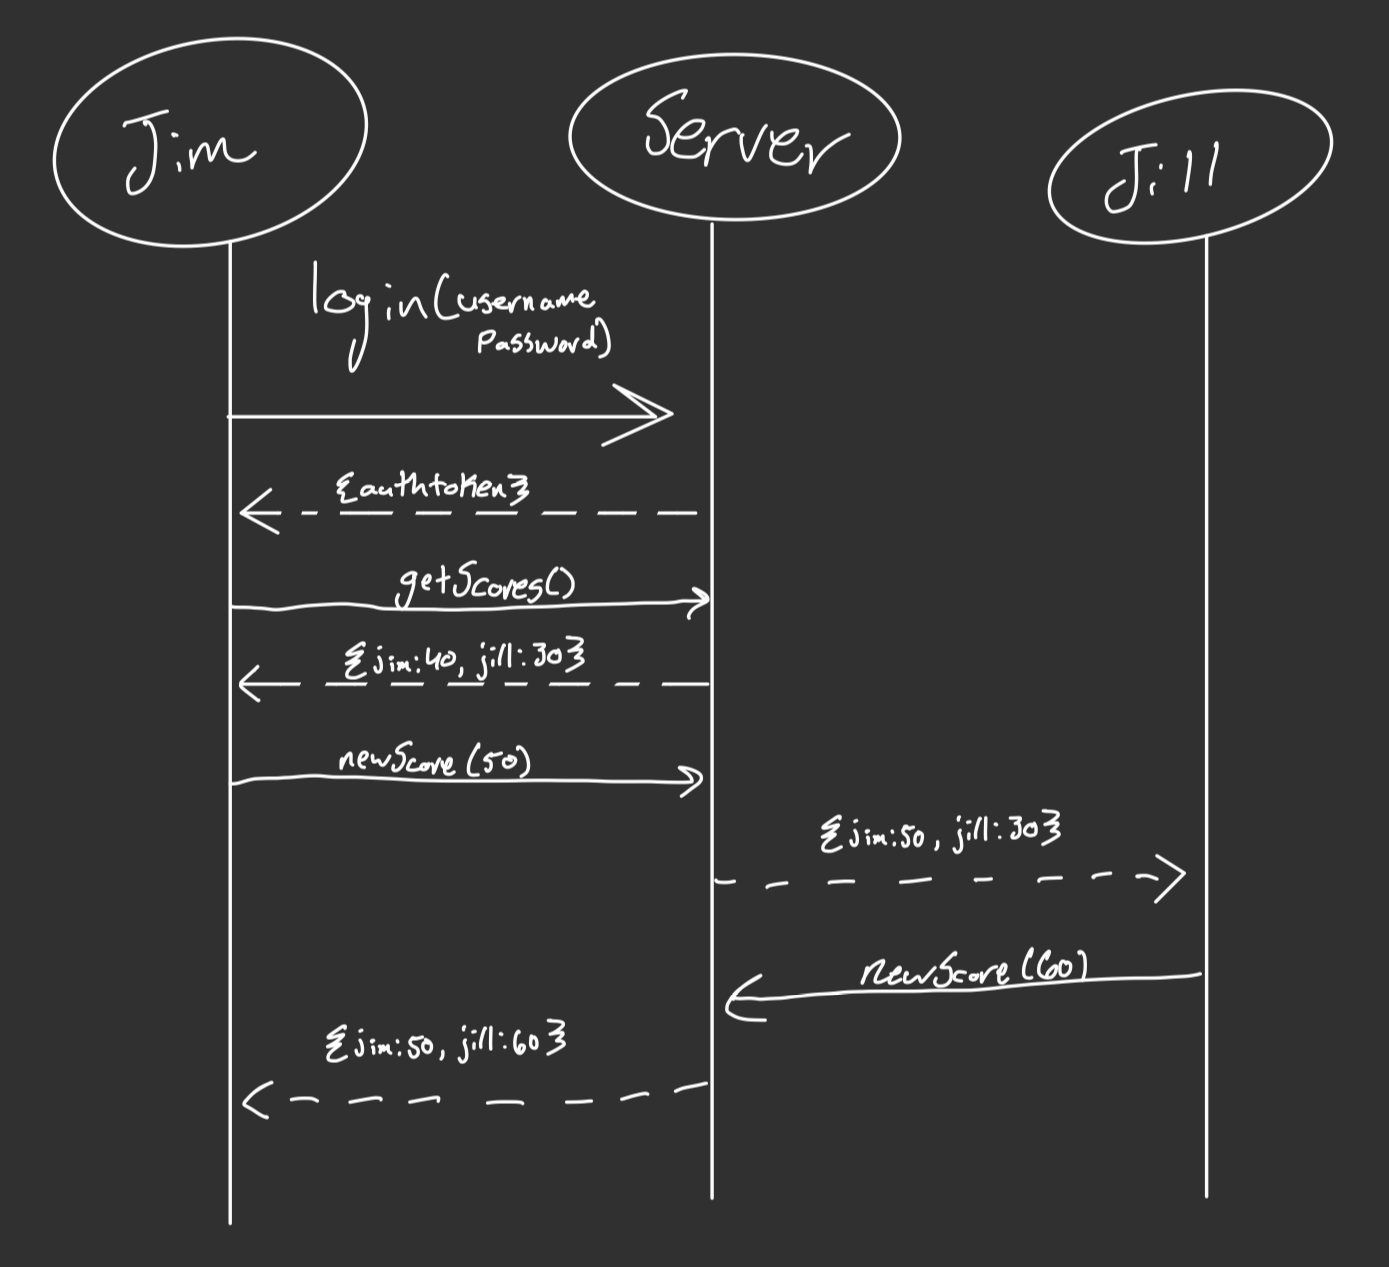 Jim
Server
Jill
login(username
password)
{authtoken}
getScores()
{jim:40, jill:30}
newScore(50)
{jim:50, jill:30}
newScore(60)
{jim:50, jill:60}